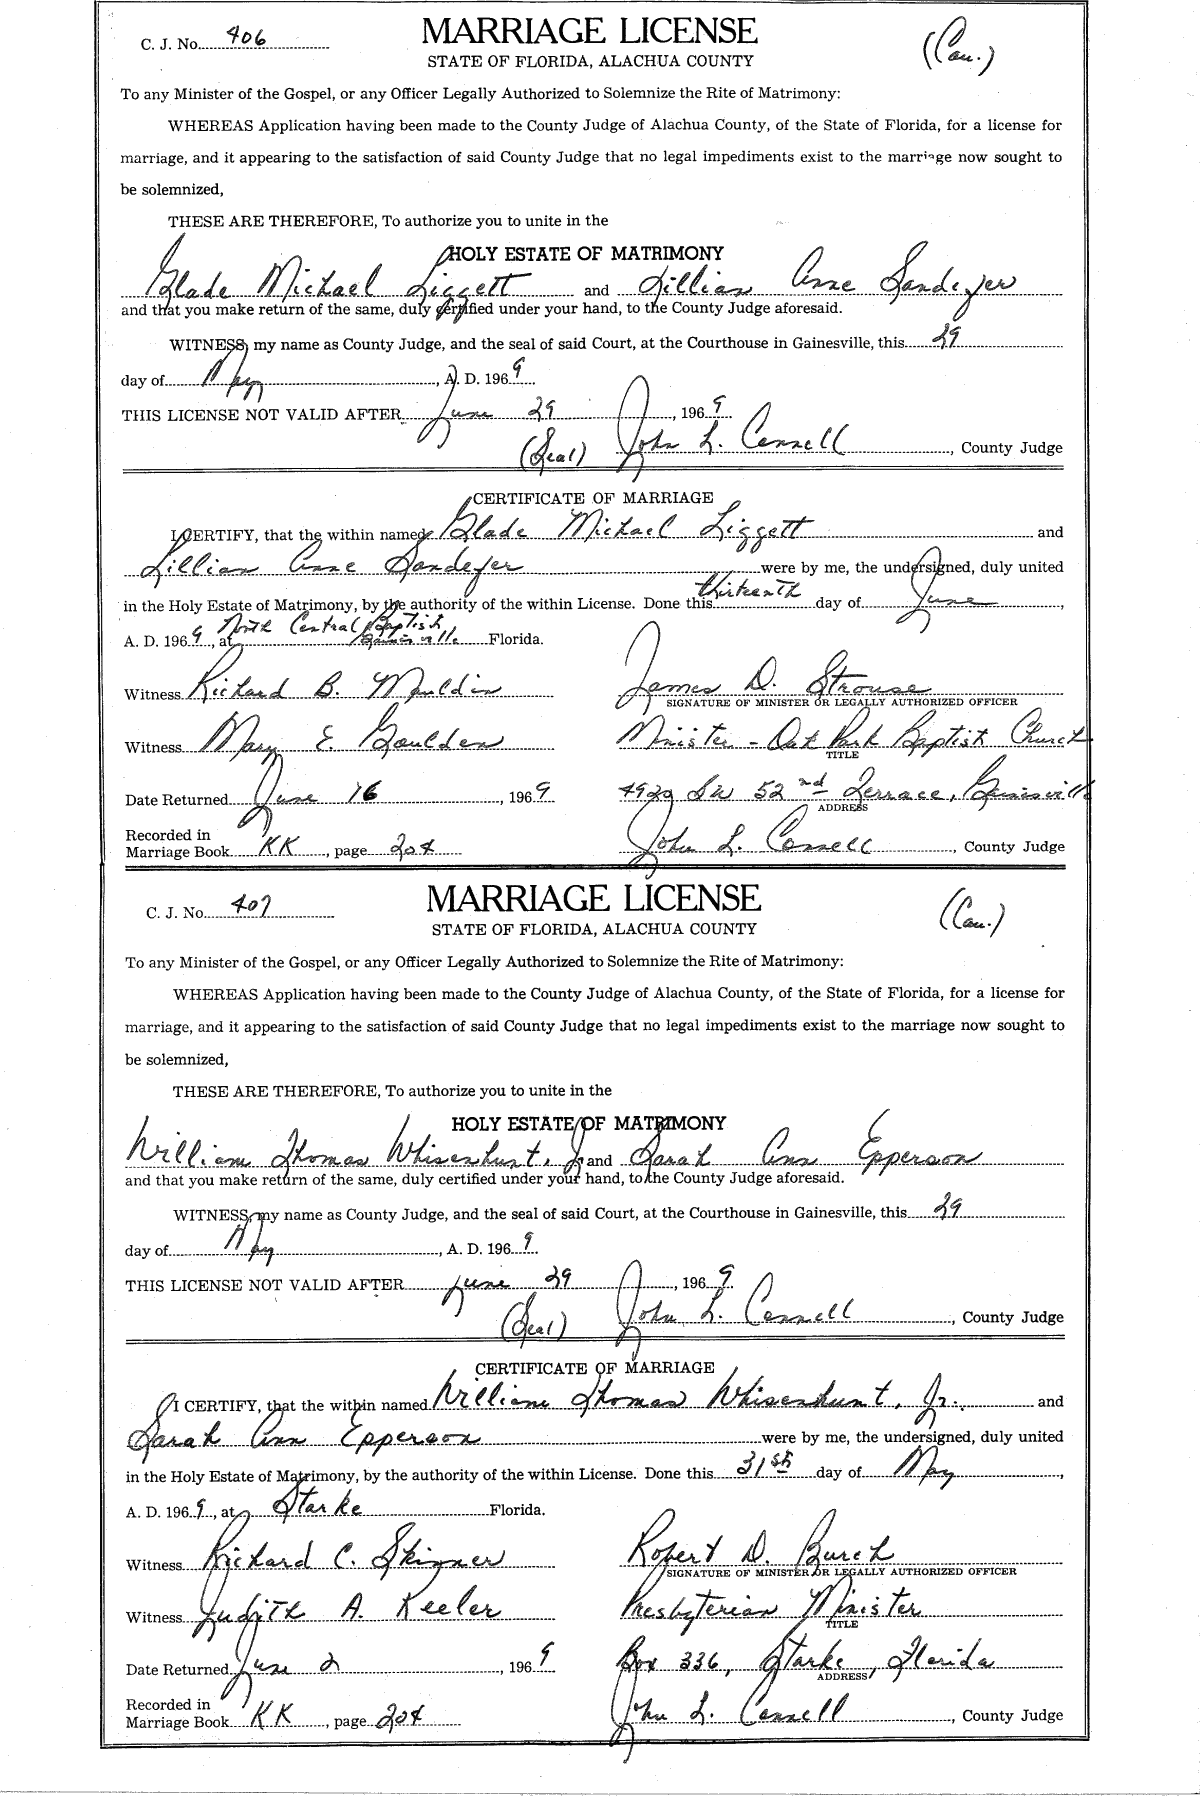 C. J. No. 406
MARRIAGE LICENSE
(Cau.)
STATE OF FLORIDA, ALACHUA COUNTY
To any Minister of the Gospel, or any Officer Legally Authorized to Solemnize the Rite of Matrimony:
WHEREAS Application having been made to the County Judge of Alachua County, of the State of Florida, for a license for
marriage, and it appearing to the satisfaction of said County Judge that no legal impediments exist to the marriage now sought to
be solemnized,
THESE ARE THEREFORE, To authorize you to unite in the
HOLY ESTATE OF MATRIMONY
Glade Michael Liggett and Lillian Anne Sandefer
and that you make return of the same, duly certified under your hand, to the County Judge aforesaid.
WITNESS, my name as County Judge, and the seal of said Court, at the Courthouse in Gainesville, this 29
day of May, A. D. 1969.
THIS LICENSE NOT VALID AFTER June 29, 1969.
(Seal) John L. Connell, County Judge
CERTIFICATE OF MARRIAGE
I CERTIFY, that the within named Glade Michael Liggett and
Lillian Anne Sandefer were by me, the undersigned, duly united
in the Holy Estate of Matrimony, by the authority of the within License. Done this thirteenth day of June,
A. D. 1969, at North Central Baptist Gainesville Florida.
Witness Richard B. Mauldin James D. Strouse
SIGNATURE OF MINISTER OR LEGALLY AUTHORIZED OFFICER
Witness Mary E. Goulden Minister - Oak Park Baptist Church
TITLE
Date Returned June 16, 1969 4929 SW 52nd Terrace, Gainesville
ADDRESS
Recorded in
Marriage Book KK, page 204 John L. Connell, County Judge
C. J. No. 407
MARRIAGE LICENSE
(Cau.)
STATE OF FLORIDA, ALACHUA COUNTY
To any Minister of the Gospel, or any Officer Legally Authorized to Solemnize the Rite of Matrimony:
WHEREAS Application having been made to the County Judge of Alachua County, of the State of Florida, for a license for
marriage, and it appearing to the satisfaction of said County Judge that no legal impediments exist to the marriage now sought to
be solemnized,
THESE ARE THEREFORE, To authorize you to unite in the
HOLY ESTATE OF MATRIMONY
William Thomas Whisenhunt, Jr. and Sarah Ann Epperson
and that you make return of the same, duly certified under your hand, to the County Judge aforesaid.
WITNESS, my name as County Judge, and the seal of said Court, at the Courthouse in Gainesville, this 29
day of May, A. D. 1969.
THIS LICENSE NOT VALID AFTER June 29, 1969.
(Seal) John L. Connell, County Judge
CERTIFICATE OF MARRIAGE
I CERTIFY, that the within named William Thomas Whisenhunt, Jr. and
Sarah Ann Epperson were by me, the undersigned, duly united
in the Holy Estate of Matrimony, by the authority of the within License. Done this 31st day of May,
A. D. 1969, at Starke Florida.
Witness Richard C. Skinner Robert D. Burch
SIGNATURE OF MINISTER OR LEGALLY AUTHORIZED OFFICER
Witness Judith A. Keeler Presbyterian Minister
TITLE
Date Returned June 2, 1969 Box 336, Starke, Florida
ADDRESS
Recorded in
Marriage Book KK, page 204 John L. Connell, County Judge